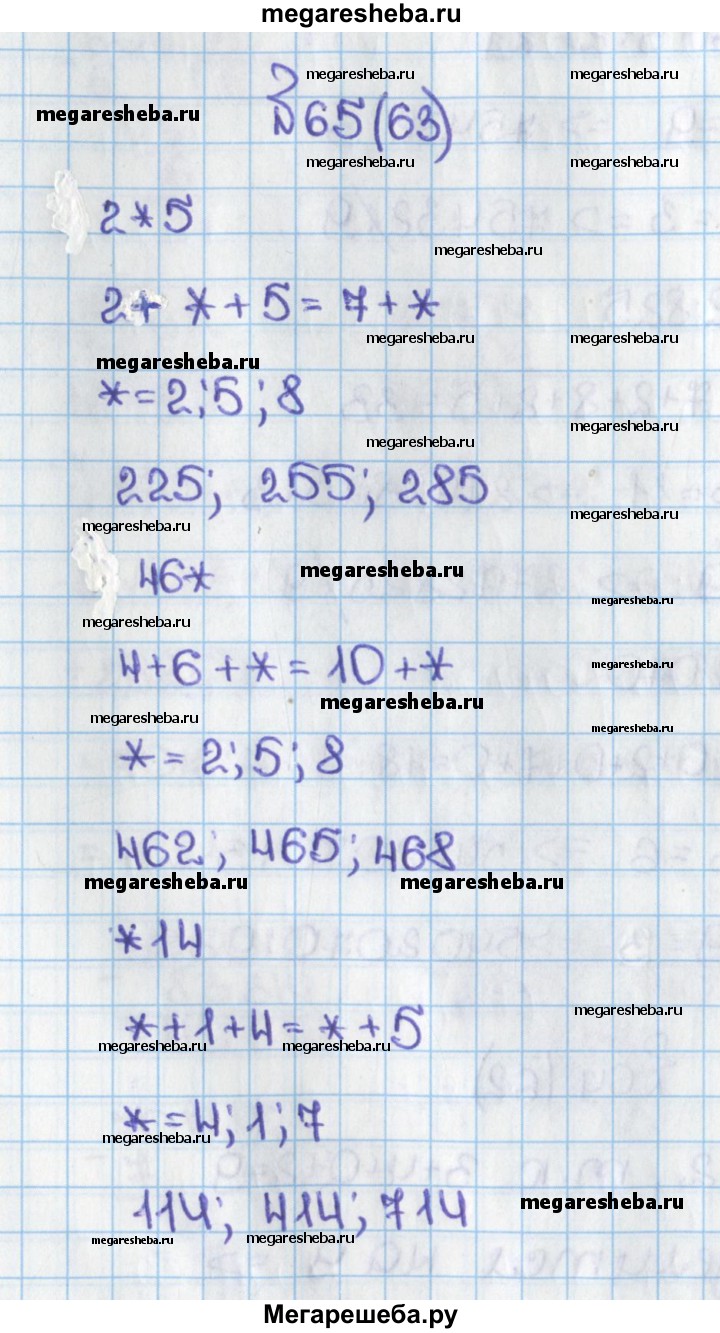 megaresheba.ru
megaresheba.ru megaresheba.ru
megaresheba.ru
№65(63)
megaresheba.ru megaresheba.ru
2*5
megaresheba.ru
2+ * + 5 = 7 + *
megaresheba.ru megaresheba.ru
megaresheba.ru
* = 2; 5; 8
megaresheba.ru
megaresheba.ru
225; 255; 285
megaresheba.ru
megaresheba.ru
46*
megaresheba.ru
megaresheba.ru
megaresheba.ru
4+6+* = 10+*
megaresheba.ru
megaresheba.ru
megaresheba.ru
megaresheba.ru
* = 2; 5; 8
462; 465; 468
megaresheba.ru megaresheba.ru
*14
megaresheba.ru
*+1+4=*+5
megaresheba.ru megaresheba.ru
*=4; 1; 7
megaresheba.ru
114; 414; 714
megaresheba.ru
megaresheba.ru megaresheba.ru
Мегарешеба.ру